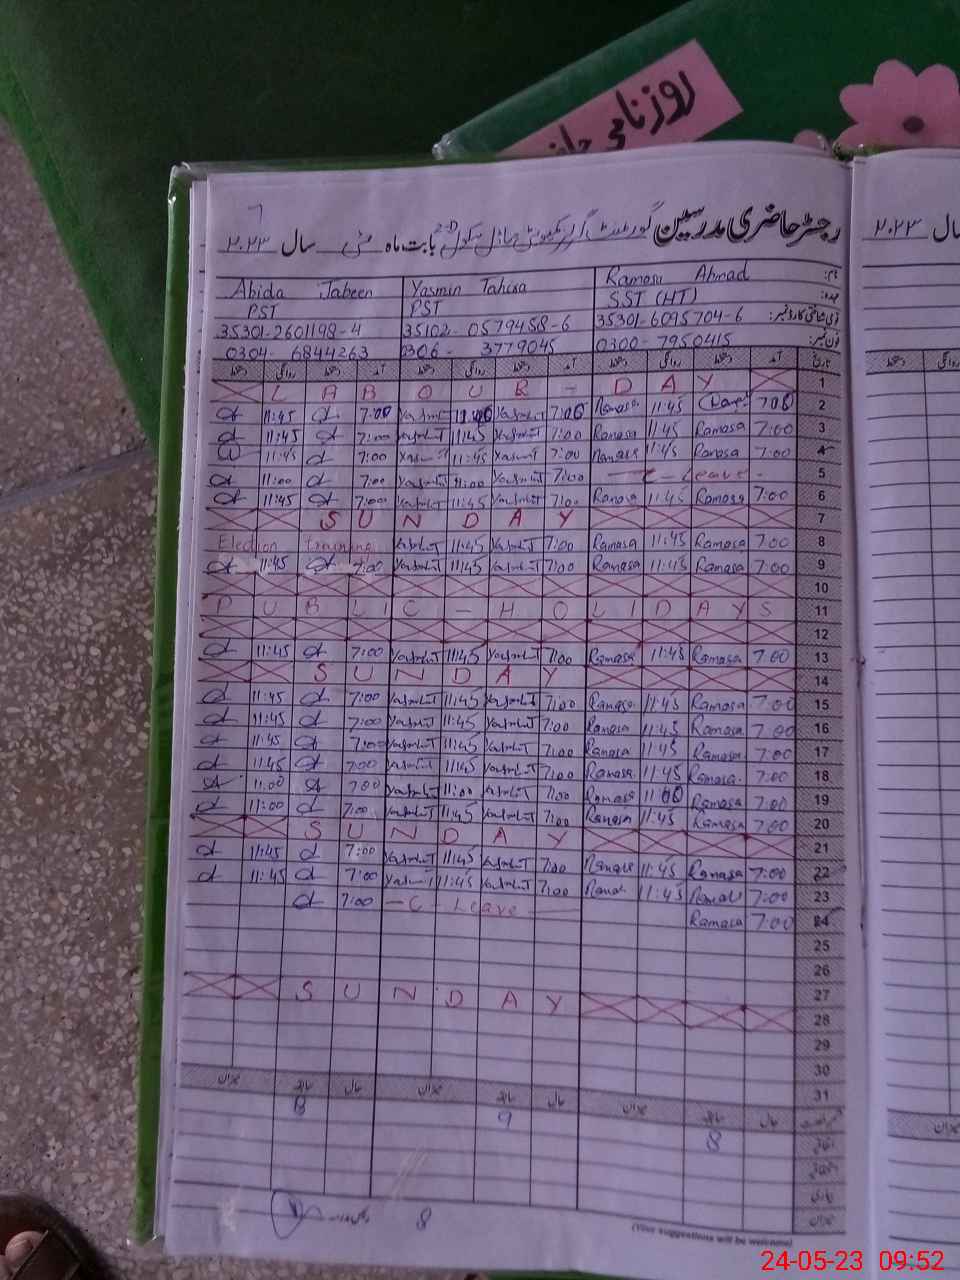 روزنامچہ
رجسٹر حاضری مدرسین گورنمنٹ گرلز کمیونٹی ماڈل سکول بابت ماہ مئی سال ۲۰۲۳
سال ۲۰۲۳
نام: Ramosa Ahmad Yasmin Tahira Abida Jabeen
عہدہ: SST (HT) PST PST
قومی شناختی کارڈ نمبر: 35301-6095704-6 35102-0579458-6 35301-2601198-4
فون نمبر: 0300-7950415 0306-3779045 0304-6844263
تاریخ آمد دستخط روانگی دستخط آمد دستخط روانگی دستخط آمد دستخط روانگی دستخط
LABOUR - DAY 1
11:45 7:00 Yasmin T Yasmin T 7:00 Ramosa 11:45 7:00 2
11:45 7:00 Yasmin T 11:45 Yasmin T 7:00 Ramosa 11:45 Ramosa 7:00 3
11:45 7:00 Yasmin T 11:45 Yasmin T 7:00 Ramosa 11:45 Ramosa 7:00 4
11:00 7:00 Yasmin T 11:00 Yasmin T 7:00 C - Leave - 5
11:45 7:00 Yasmin T 11:45 Yasmin T 7:00 Ramosa 11:45 Ramosa 7:00 6
SUNDAY 7
Election training Yasmin T 11:45 Yasmin T 7:00 Ramosa 11:45 Ramosa 7:00 8
11:45 7:00 Yasmin T 11:45 Yasmin T 7:00 Ramosa 11:45 Ramosa 7:00 9
10
PUBLIC - HOLIDAYS 11
12
11:45 7:00 Yasmin T 11:45 Yasmin T 7:00 Ramosa 11:45 Ramosa 7:00 13
SUNDAY 14
11:45 7:00 Yasmin T 11:45 Yasmin T 7:00 Ramosa 11:45 Ramosa 7:00 15
11:45 7:00 Yasmin T 11:45 Yasmin T 7:00 Ramosa 11:45 Ramosa 7:00 16
11:45 7:00 Yasmin T 11:45 Yasmin T 7:00 Ramosa 11:45 Ramosa 7:00 17
11:45 7:00 Yasmin T 11:45 Yasmin T 7:00 Ramosa 11:45 Ramosa 7:00 18
11:00 7:00 Yasmin T 11:00 Yasmin T 7:00 Ramosa 11:00 Ramosa 7:00 19
11:00 7:00 Yasmin T 11:45 Yasmin T 7:00 Ramosa 11:45 Ramosa 7:00 20
SUNDAY 21
11:45 7:00 Yasmin T 11:45 Yasmin T 7:00 Ramosa 11:45 Ramosa 7:00 22
11:45 7:00 Yasmin T 11:45 Yasmin T 7:00 11:45 7:00 23
7:00 - C - Leave Ramosa 7:00 24
25
26
SUNDAY 27
28
29
30
31
میزان سابقہ حال میزان سابقہ حال میزان سابقہ حال
8
9
8
8
(Your suggestions will be welcome)
24-05-23 09:52